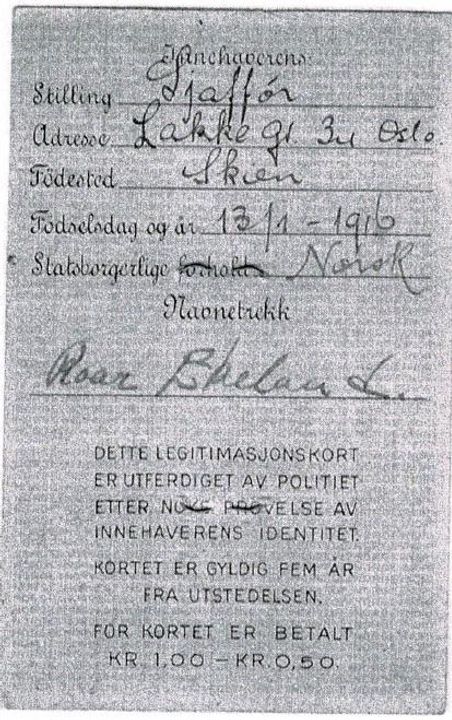 Innehaverens:
Stilling Sjaffør
Adresse Lakkegt. 3II Oslo.
Födested Skien
Födselsdag og år 13/1 - 1916
Statsborgerlige forhold Norsk
Navnetrekk
Roar Ekeland.
DETTE LEGITIMASJONSKORT
ER UTFERDIGET AV POLITIET
ETTER NÖIE PRÖVELSE AV
INNEHAVERENS IDENTITET.
KORTET ER GYLDIG FEM ÅR
FRA UTSTEDELSEN.
FOR KORTET ER BETALT
KR. 1,00 – KR. 0,50.